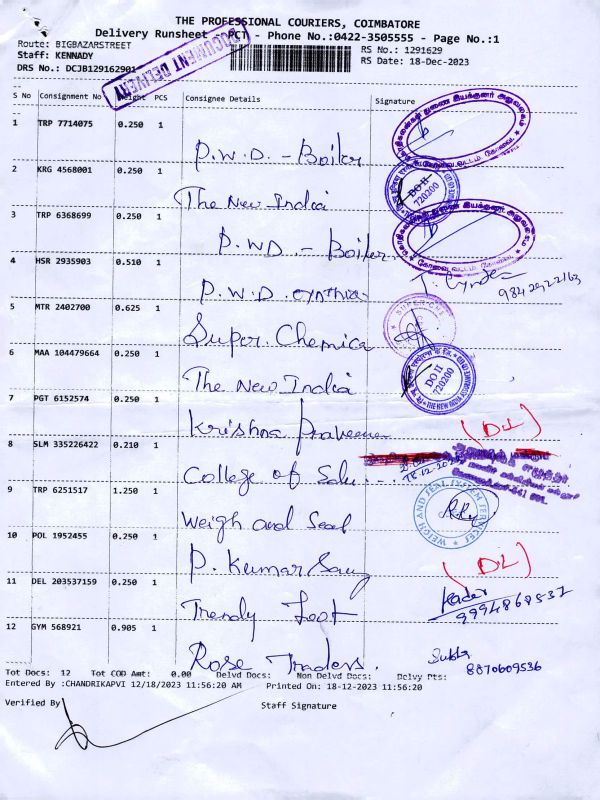 THE PROFESSIONAL COURIERS, COIMBATORE
Delivery Runsheet - PCT - Phone No.:0422-3505555 - Page No.:1
Route: BIGBAZARSTREET
RS No.: 1291629
Staff: KENNADY
RS Date: 18-Dec-2023
DRS No.: DCJB129162901
DOCUMENT DELIVERY
S No Consignment No Weight PCS Consignee Details Signature
1 TRP 7714075 0.250 1
P.W.D. - Boiler
2 KRG 4568001 0.250 1
The New India
DO II
720200
3 TRP 6368699 0.250 1
P.WD. - Boiler
4 HSR 2935903 0.510 1
P.W.D. cynthia
5 MTR 2402700 0.625 1
Super. Chemica
6 MAA 104479664 0.250 1
The New India
DO II
720200
7 PGT 6152574 0.250 1
Krishna Praveena
(DL)
8 SLM 335226422 0.210 1
College of Edu...
9 TRP 6251517 1.250 1
Weigh and Seal
10 POL 1952455 0.250 1
P. Kumar
(DL)
11 DEL 203537159 0.250 1
Trendy Foot
Kader
9994868537
12 GYM 568921 0.905 1
Rose Traders.
8870609536
Tot Docs: 12 Tot COD Amt: 0.00 Delvd Docs: Non Delvd Docs: Delvy Pts:
Entered By :CHANDRIKAPVI 12/18/2023 11:56:20 AM Printed On: 18-12-2023 11:56:20
Verified By
Staff Signature